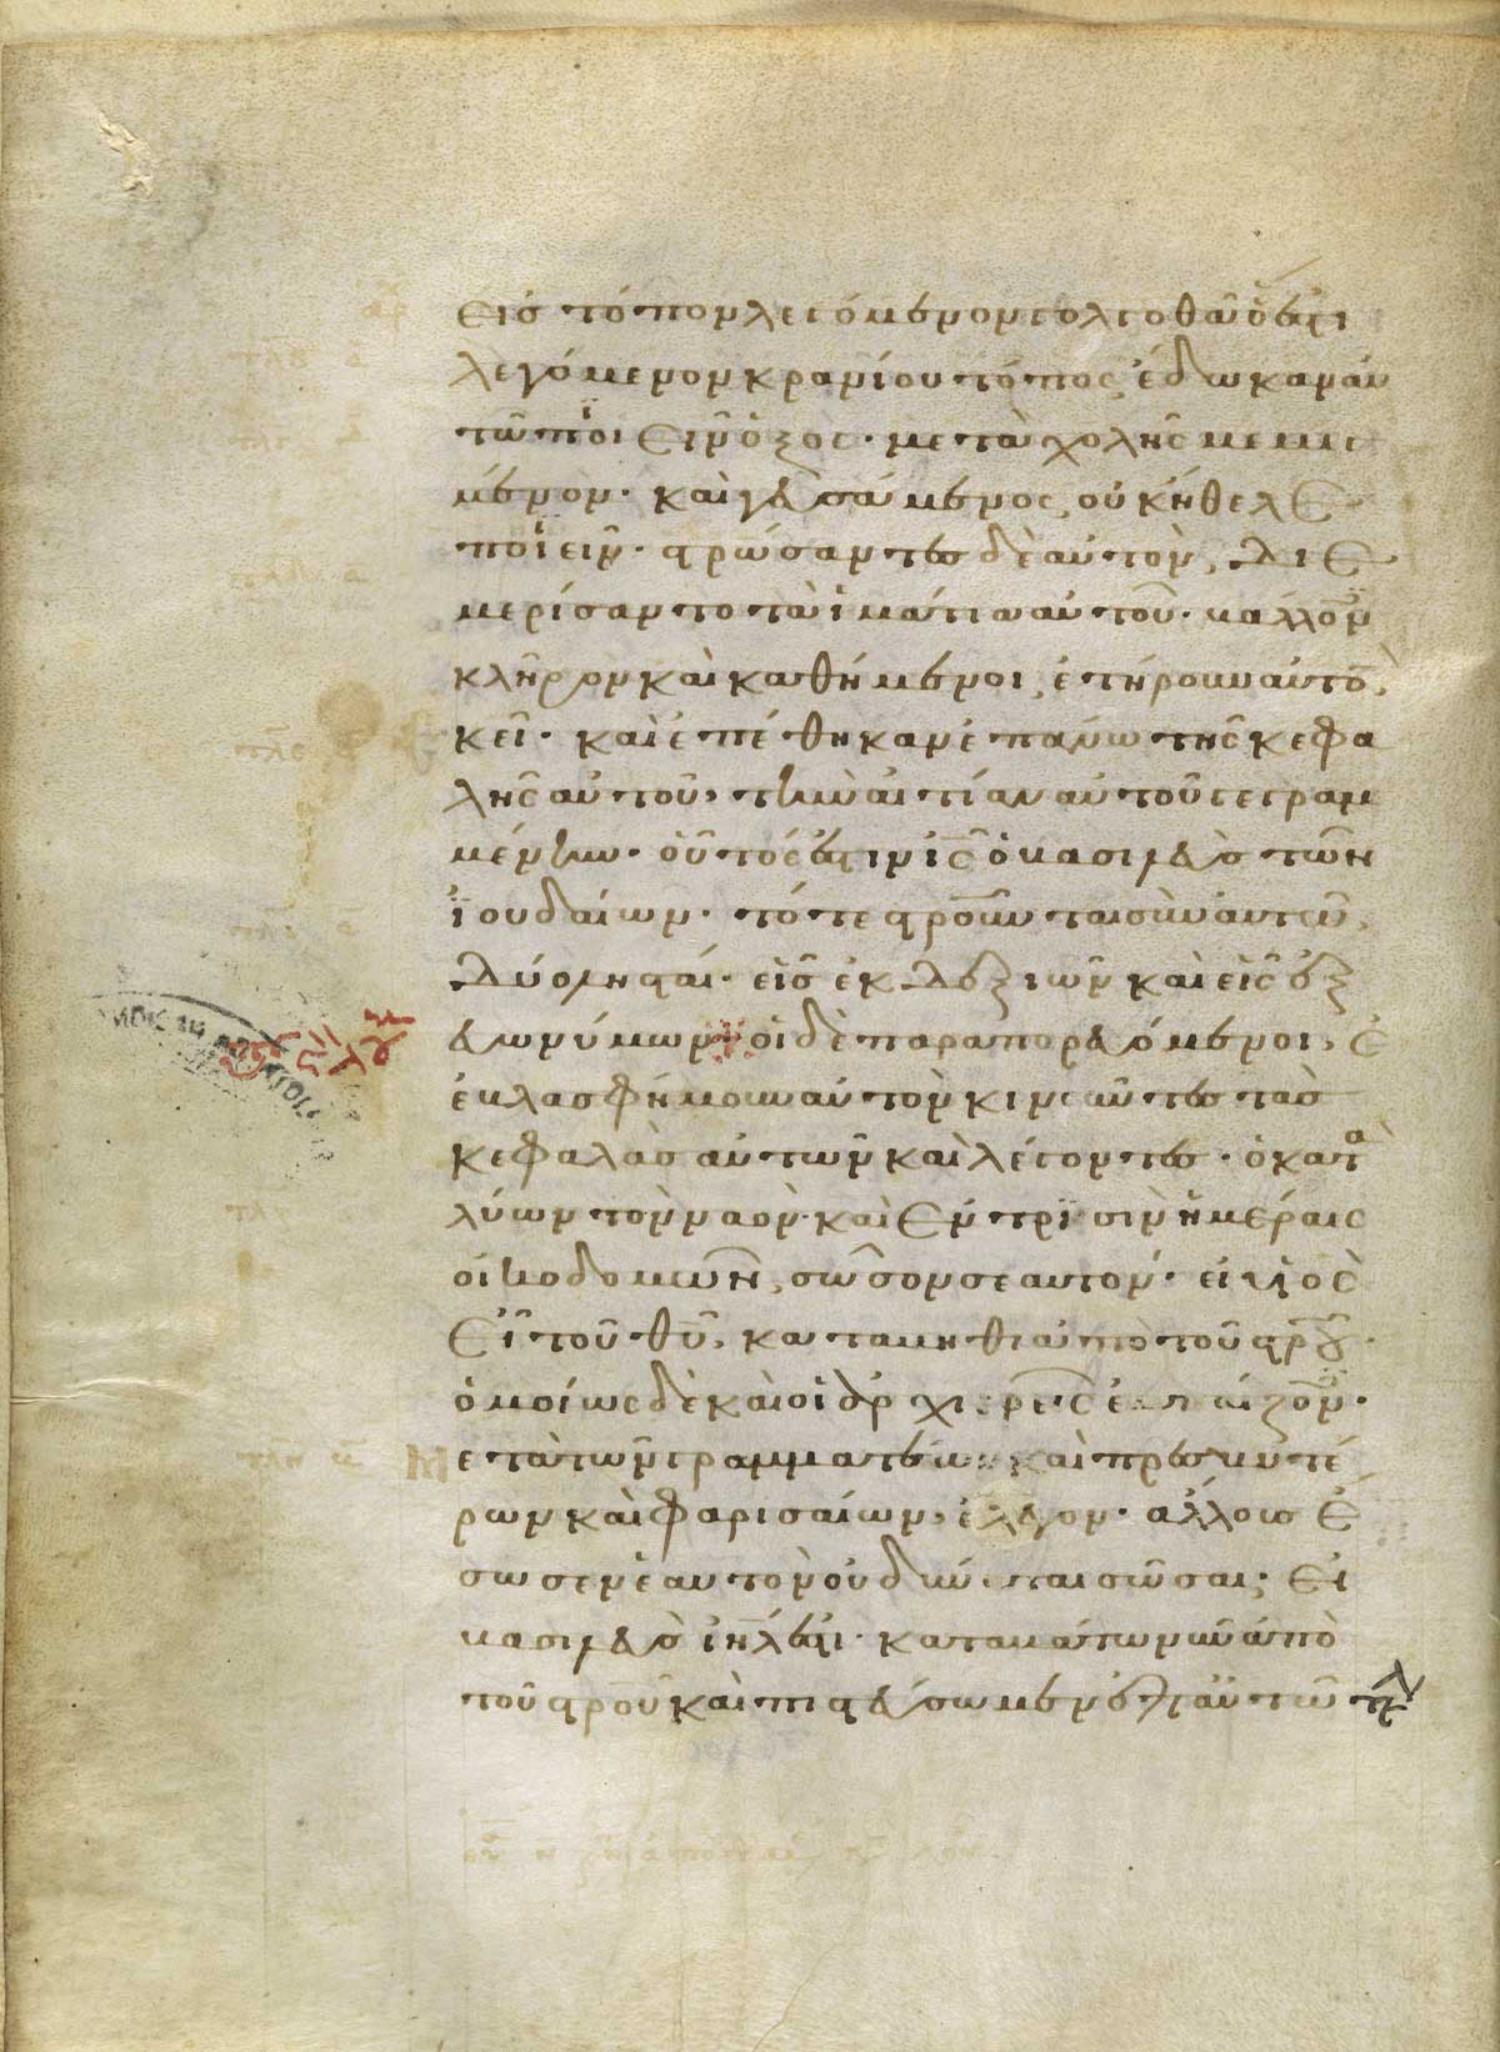 εἰς τόπον λεγόμενον γολγοθᾶ ὅ ἐστι
λεγόμενον κρανίου τόπος, ἔδωκαν αὐ
τῶ ποιεῖν ὄξος· μετὰ χολῆς μεμιγ
μένον· καὶ γευσάμενος, οὐκ ἤθελε
ποιεῖν· στρώσαντες δὲ αὐτὸν, διε
μερίσαντο τὰ ἱμάτια αὐτοῦ· βάλλον
κλῆρον καὶ καθήμενοι, ἐτήρουν αὐτὸ,
κεῖ· καὶ ἐπέθηκαν ἐπάνω τῆς κεφα
λῆς αὐτοῦ, τὴν αἰτίαν αὐτοῦ γεγραμ
μένην· οὗτός ἐστιν ἰς ὁ βασιλεὺς τῶν
ἰουδαίων· τότε στροῦνται σὺν αὐτῶ,
δύο λησταί· εἷς ἐκ δεξιῶν καὶ εἷς ἐξ
εὐωνύμων· οἱ δὲ παραπορευόμενοι, ἐ
ἐβλασφήμουν αὐτὸν κινοῦντες τὰς
κεφαλὰς αὐτῶν καὶ λέγοντες· ὁ κατα
λύων τὸν ναὸν· καὶ ἐν τρισὶν ἡμέραις
οἰκοδομῶν, σῶσον σεαυτόν· εἰ υἱὸς
εἶ τοῦ θυ, κατάβηθι ἀπὸ τοῦ στρου·
ὁμοίως δὲ καὶ οἱ ἀρχιερεῖς ἐμπαίζον·
ετὰ τῶν γραμματέων καὶ πρεσβυτέ
ρων καὶ φαρισαίων, ἔλεγον· ἄλλους ἔ
σωσεν ἑαυτὸν οὐ δύναται σῶσαι· εἰ
βασιλεὺς ἰηλ ἐστι· καταβάτω νῦν ἀπὸ
τοῦ στροῦ καὶ πιστεύσωμεν ἐπ αὐτῶ